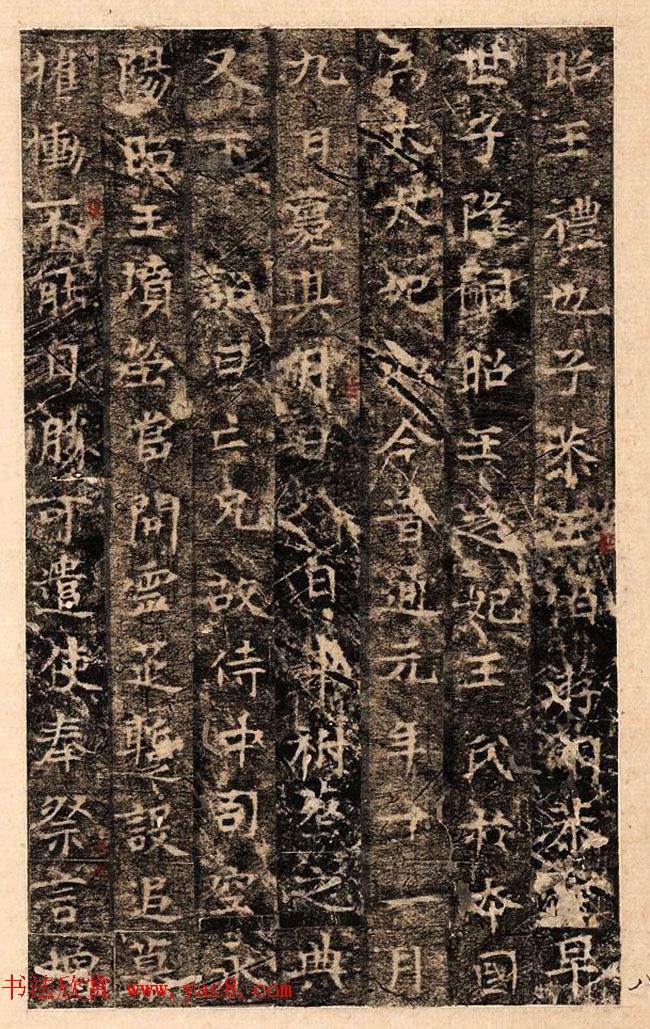 昭王禮也子恭伯游恭早
世子隆嗣昭王之妃王氏於本國
為太太妃今普通元年十一月
九日薨其明日祔葬之典
又下詔曰亡兄故侍中司空永
陽昭王墳塋當開靈筵暫設追慕
摧慟不能自勝可遣使奉祭言增
八
书法欣赏 www.yac8.com